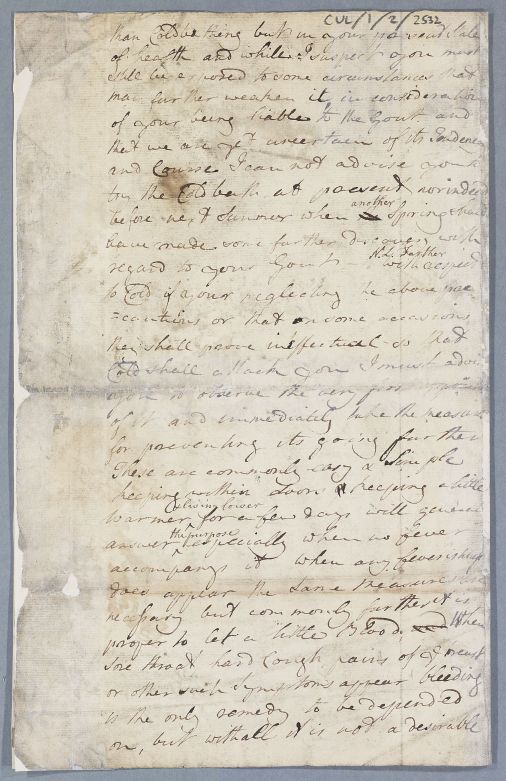 CUL/1/2/2532
than Cold bathing but in your present State
of health and while I suspect you must
still be exposed to some circumstances that
may further weaken it in consideration
of your being liable to the Gout and
that we are yet uncertain of its Tendency
and Course I can not advise you to
try the Cold bath at present nor indeed
before next Summer when another Spring shall
have made some further discovery with
regard to your Gout. N.L. Farther with respect
to Cold if your neglecting the above pre
=cautions or that on some occasions
they shall prove ineffectual so that
Cold shall attack you I must advise
you to observe the very first
of it and immediately take the measures
for preventing its going further
These are commonly easy & Simple
keeping within Doors & keeping a little
warmer & living lower for a few days will generally
answer the purpose especially when no fever
accompanys it when any feverishness
does appear the same Measures are
necessary but commonly further it is
proper to let a little Blood, When
Sore throat hard Cough pains of ye breast
or other such Symptoms appear bleeding
is the only remedy to be depended
on, but withall it is not a desirable